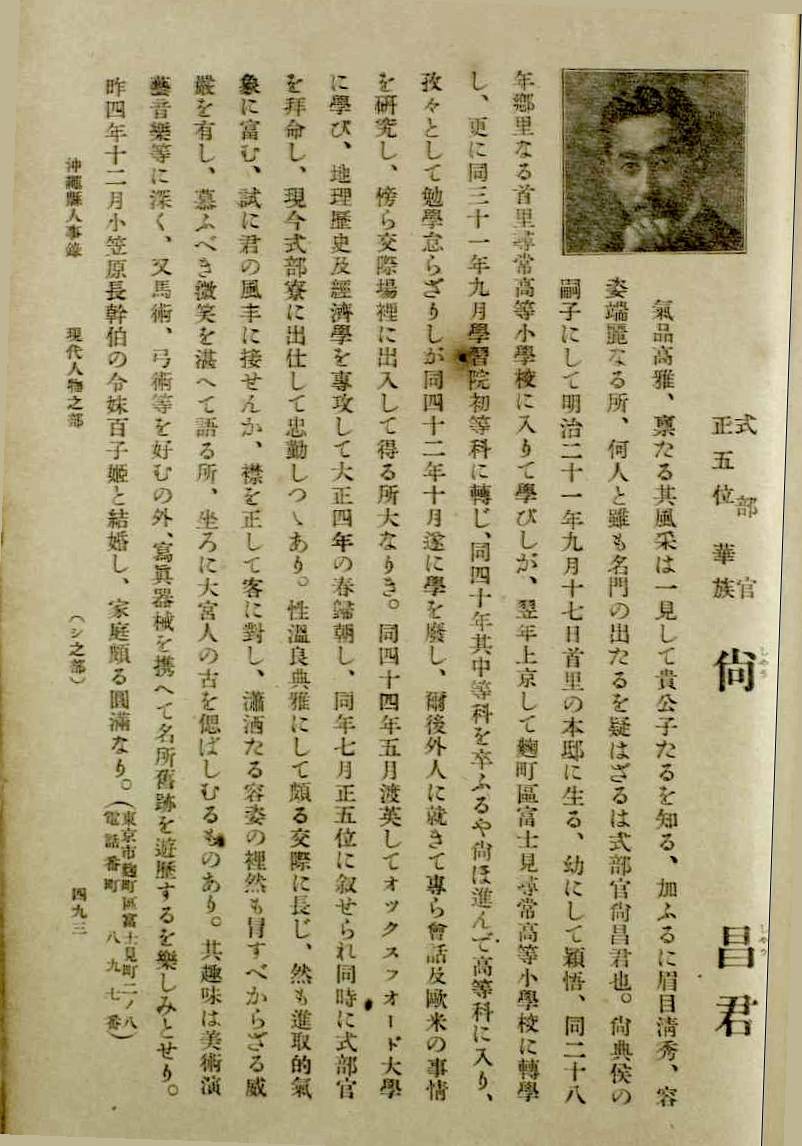 式部官
正五位 華族
尙 昌君
しやう しやう
氣品高雅、禀たる其風采は一見して貴公子たるを知る、加ふるに眉目淸秀、容
姿端麗なる所、何人と雖も名門の出たるを疑はざるは式部官尙昌君也。尙典侯の
嗣子にして明治二十一年九月十七日首里の本邸に生る、幼にして穎悟、同二十八
年鄕里なる首里尋常高等小學校に入りて學びしが、翌年上京して麴町區富士見尋常高等小學校に轉學
し、更に同三十一年九月學習院初等科に轉じ、同四十年其中等科を卒ふるや尙ほ進んで高等科に入り、
孜々として勉學怠らざりしが同四十二年十月遂に學を廢し、爾後外人に就きて專ら會話及歐米の事情
を硏究し、傍ら交際場裡に出入して得る所大なりき。同四十四年五月渡英してオツクスフオード大學
に學び、地理歷史及經濟學を專攻して大正四年の春歸朝し、同年七月正五位に叙せられ同時に式部官
を拜命し、現今式部寮に出仕して忠勤しつゝあり。性溫良典雅にして頗る交際に長じ、然も進取的氣
象に富む、試に君の風丰に接せんか、襟を正して客に對し、瀟洒たる容姿の裡然も冒すべからざる威
嚴を有し、慕ふべき微笑を湛へて語る所、坐ろに大宮人の古を偲ばしむるものあり。其趣味は美術演
藝音樂等に深く、又馬術、弓術等を好むの外、寫眞器械を携へて名所舊跡を遊歷するを樂しみとせり。
昨四年十二月小笠原長幹伯の令妹百子姬と結婚し、家庭頗る圓滿なり。
(東京市麴町區富士見町二ノ八
電話番町 八九七番)
沖繩縣人事錄 現代人物之部 (シ之部) 四九三